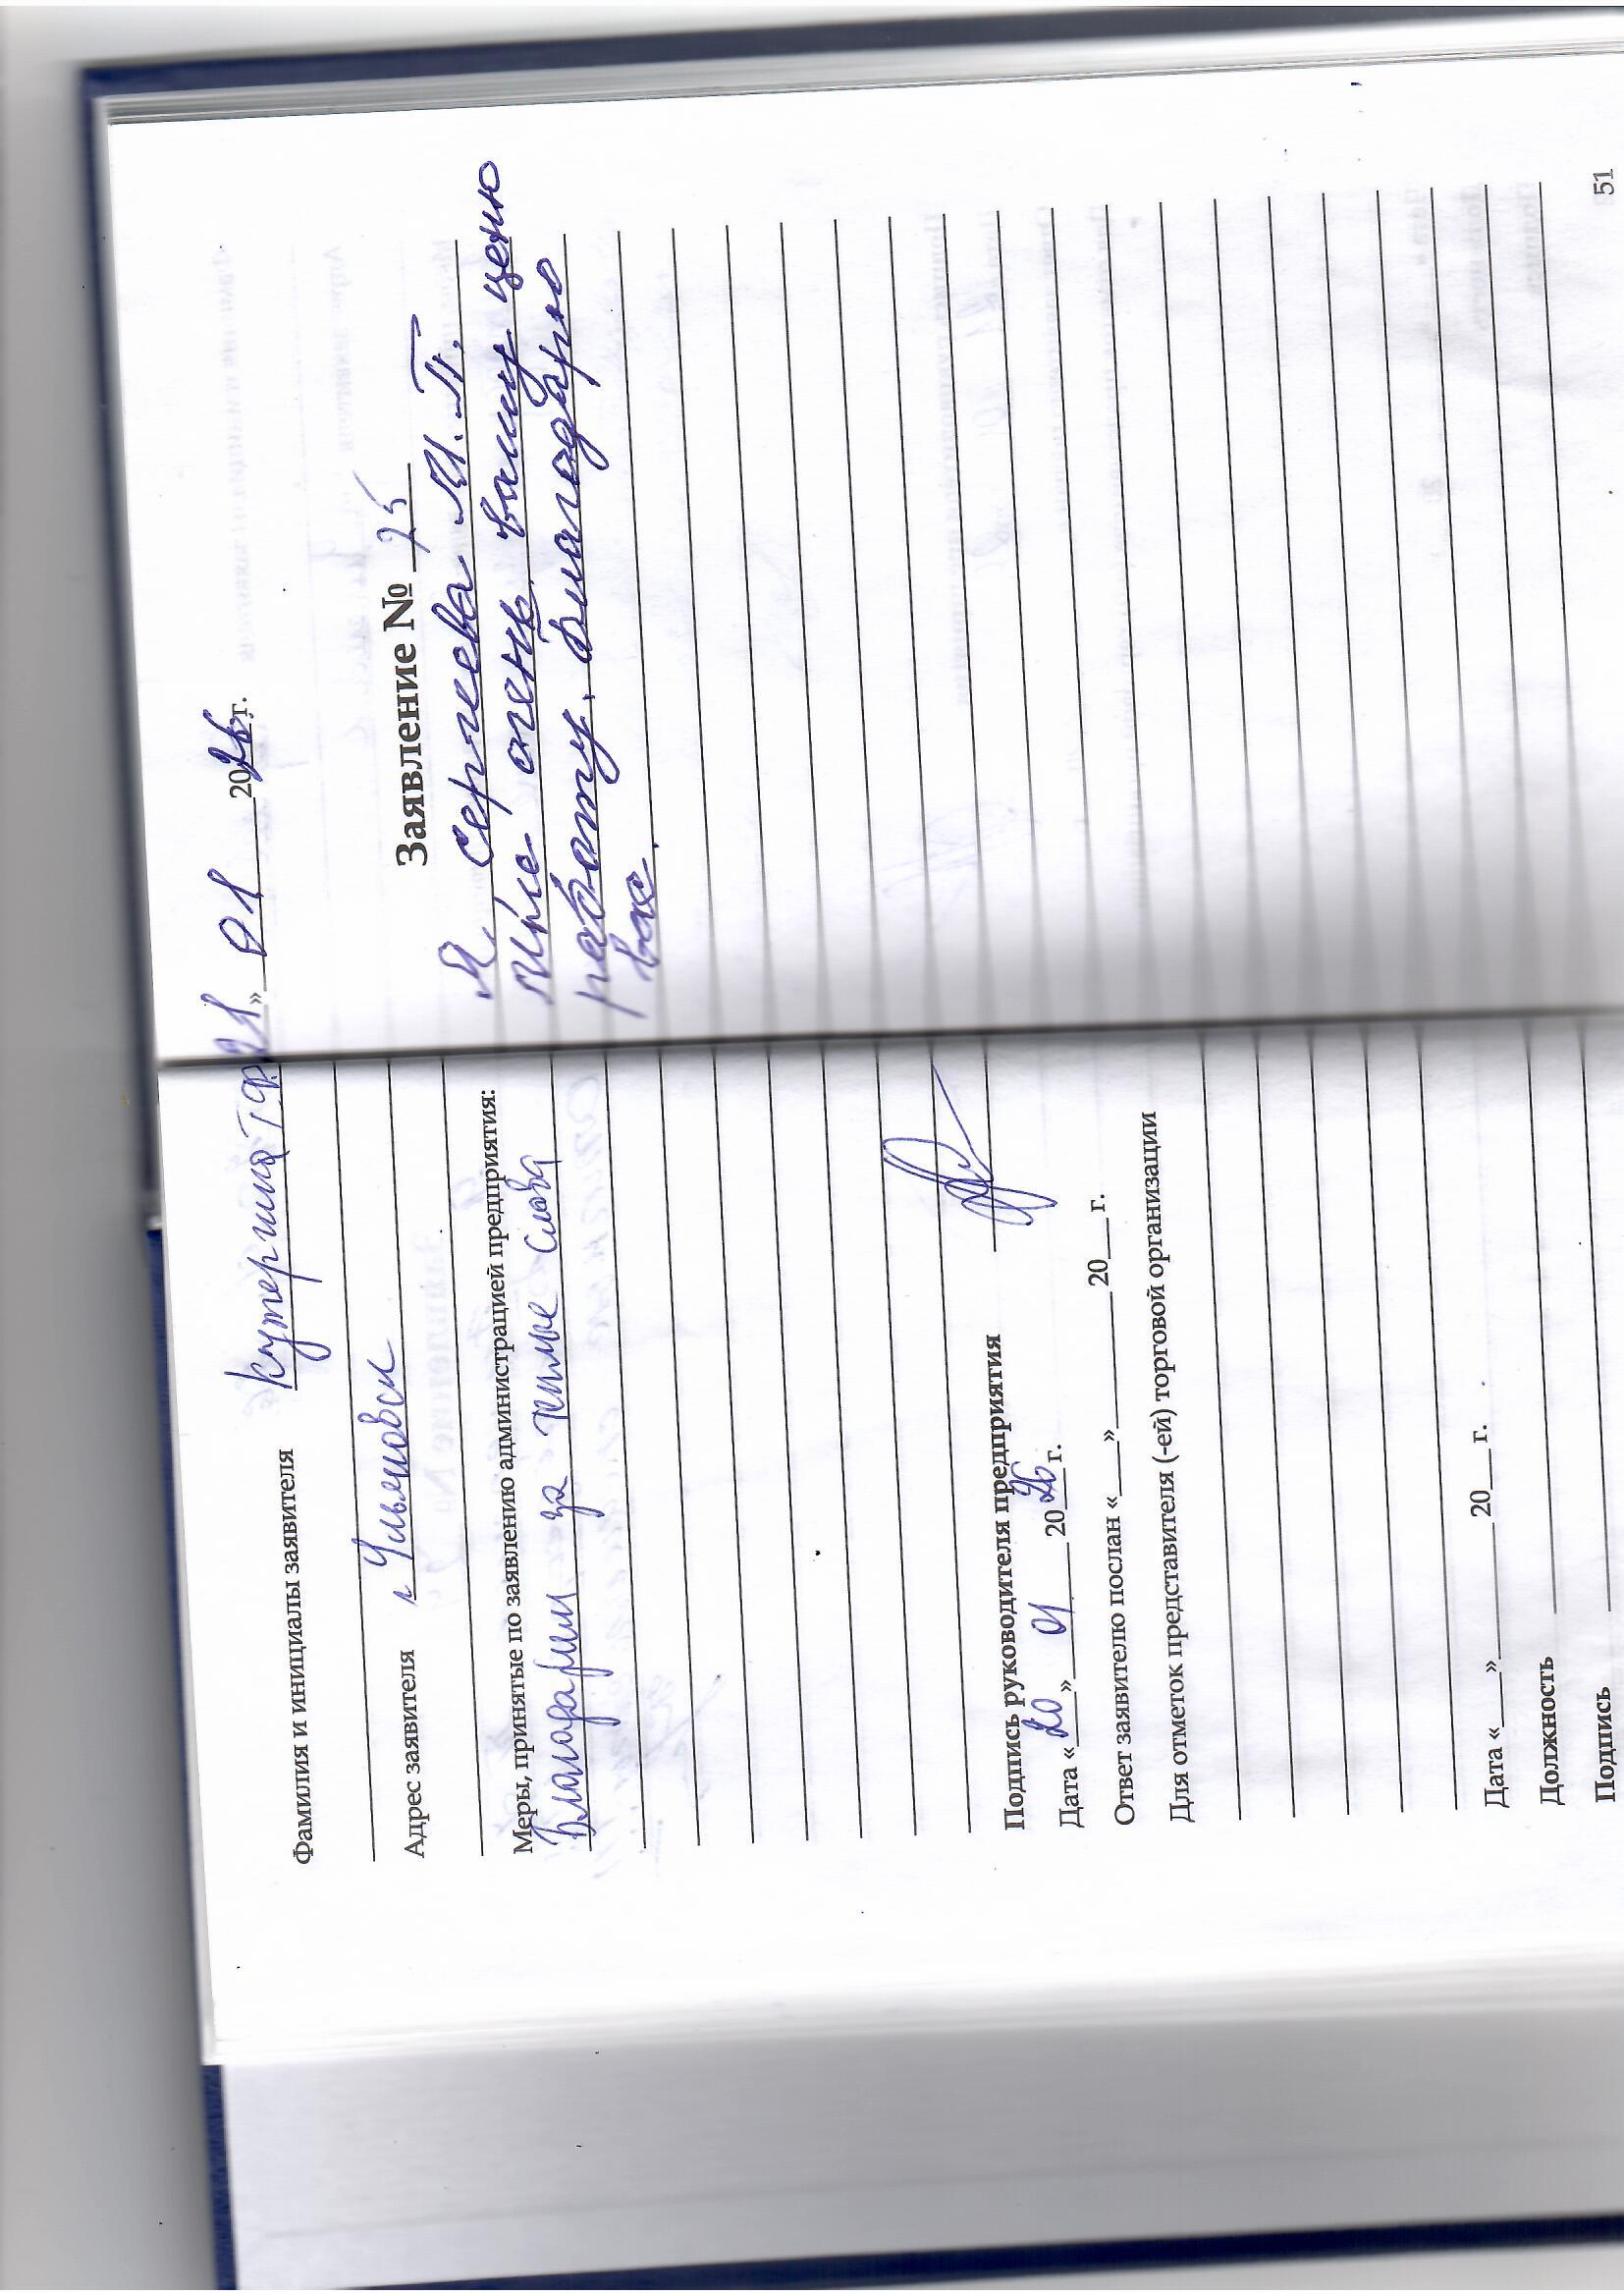 Фамилия и инициалы заявителя Кутергина Т.Ф.
Адрес заявителя г Ульяновск
Меры, принятые по заявлению администрацией предприятия:
Благодарим за теплые слова
Подпись руководителя предприятия
Дата «20» 01 2026 г.
Ответ заявителю послан «___»________20__г.
Для отметок представителя (-ей) торговой организации
Дата «___»________20__г.
Должность
Подпись
21» 01 2026 г.
Заявление № 25
Я, Сергеева М. П.
очень вашу ценю
работу. Благодарю
вас.
51